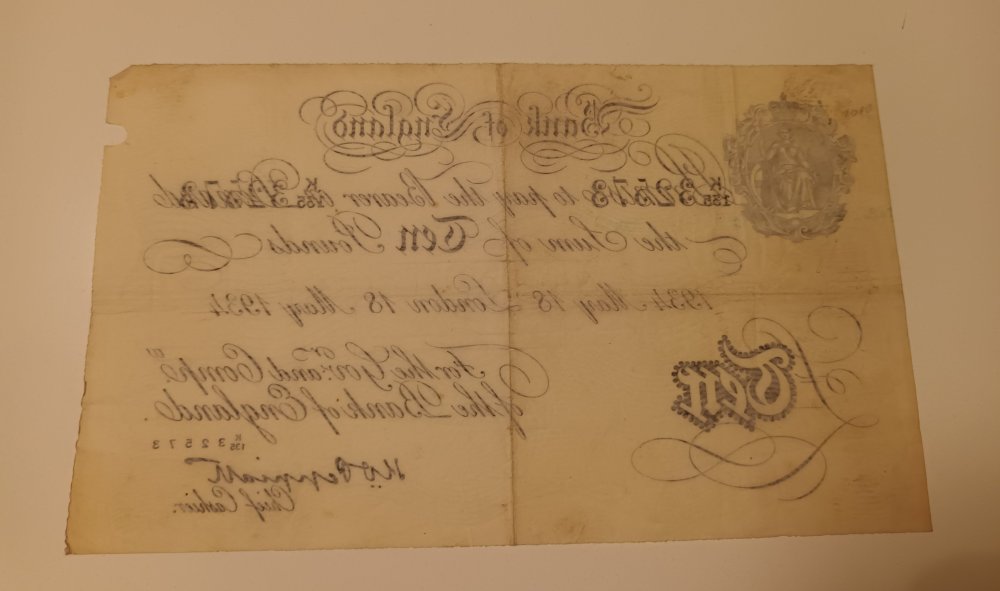 Bank of England
K 135 32573 to pay the Bearer K 135 32573
the Sum of Ten Pounds
1934 May 18 London 18 May 1934
Ten
For the Govr. and Compa.
of the Bank of England.
K 135 32573
K O Peppiatt
Chief Cashier.